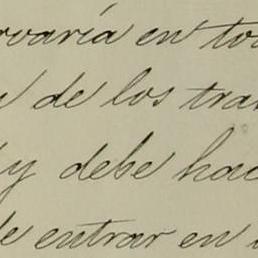 rvaría en to
de los tra
y debe hac
de entrar en